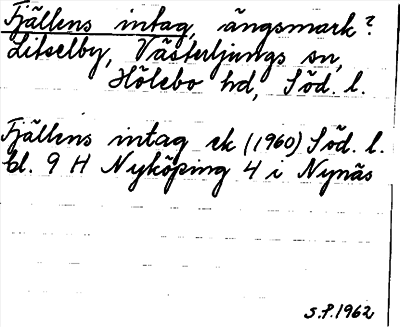 Fjällens intag, ängsmark?
Litselby, Västerljungs sn,
Hölebo hd, Söd. l.
Fjällens intag ek (1960) Söd. l.
bl. 9 H Nyköping 4 i Nynäs
S.P. 1962